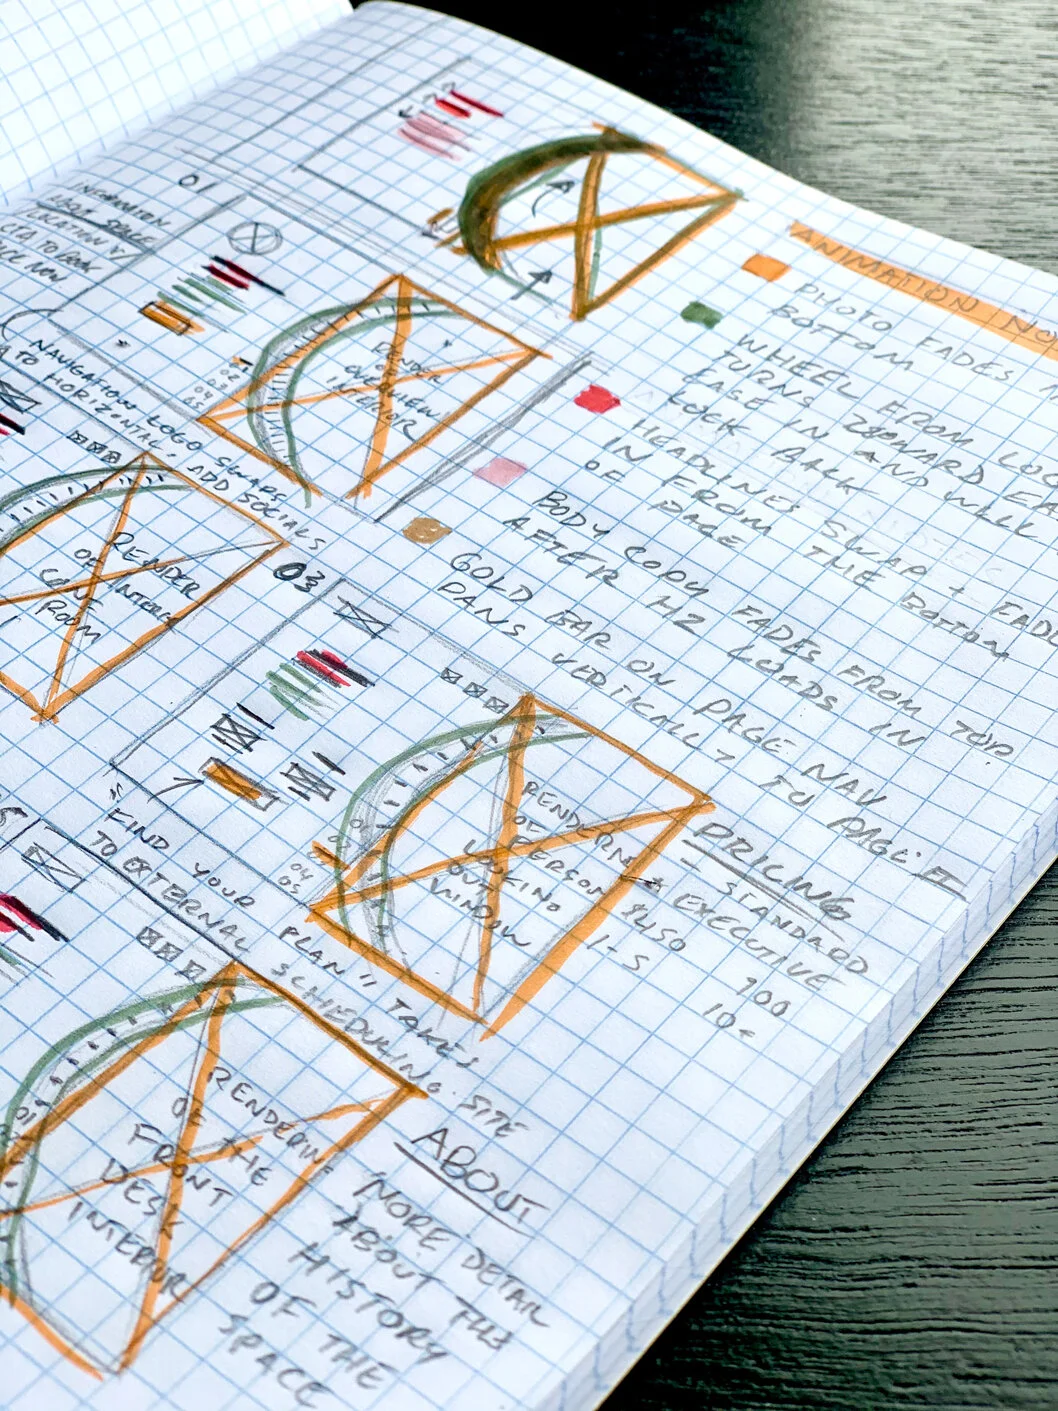 01
INFORMATION
LOCATION &
CTA TO BOOK
NOW.
RENDER
OVERVIEW
INTERIOR
NAVIGATION LOGO
TO HORIZONTAL, ADD SOCIALS
RENDER
OF INTERIOR
CONF
ROOM
ANIMATION NO
PHOTO FADES
BOTTOM
WHEEL FROM LOGO
TURNS
EASE IN AND WILL
LOCK BACK
HEADLINES SWAP + FADE
IN FROM THE BOTTOM
OF PAGE
BODY COPY FADES FROM TOP
AFTER H2 LOADS IN
GOLD BAR ON PAGE NAV
PANS VERTICALLY TO PAGE #
03
04
05
RENDERING
OF PERSON
LOOKING
OUT
WINDOW
"FIND YOUR PLAN" TAKES
TO EXTERNAL SCHEDULING SITE
PRICING
- STANDARD
EXECUTIVE
$450 900
1-5 10<
RENDERING
OF THE
FRONT
DESK
INTERIOR
ABOUT
MORE DETAIL
ABOUT THE
HISTORY
OF THE
SPACE